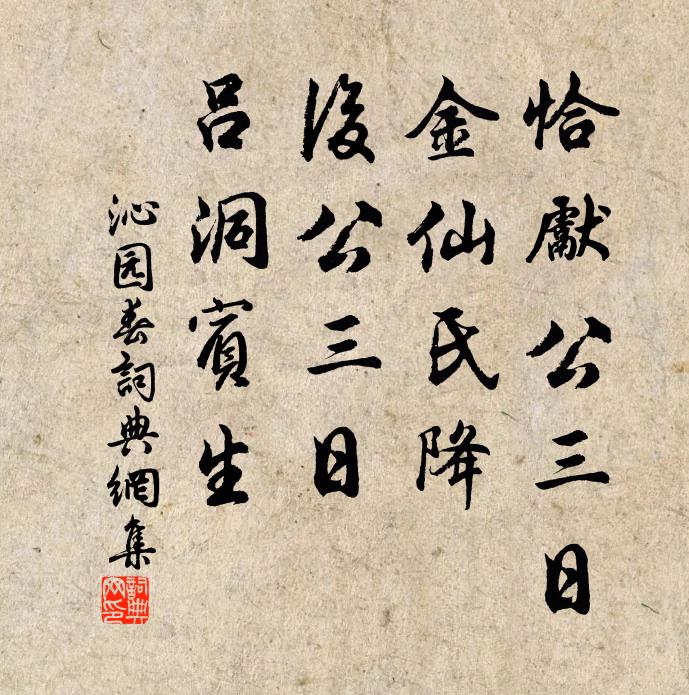 恰獻公三日
金仙氏降
後公三日
呂洞賓生
沁园春詞典網集
詞典
网印